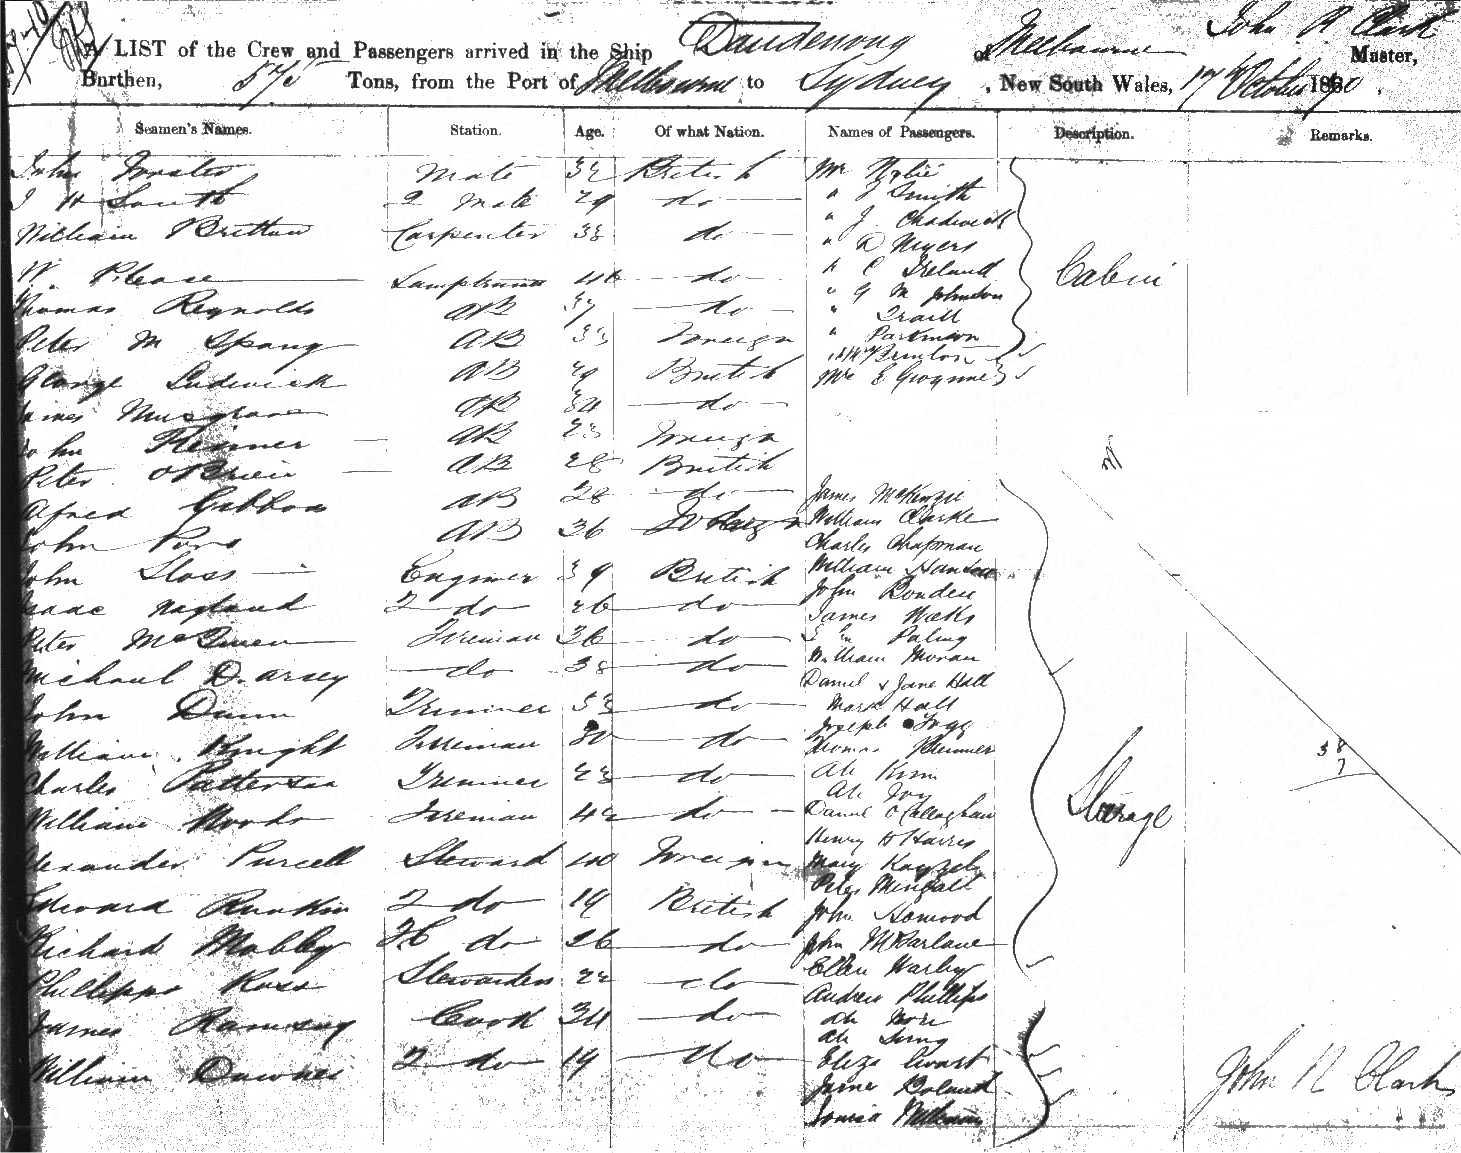 A LIST of the Crew and Passengers arrived in the Ship Dandenong of Melbourne John R Clark Master,
Burthen, 575 Tons, from the Port of Melbourne to Sydney, New South Wales, 17th October 1870.
Seamen's Names. Station. Age. Of what Nation. Names of Passengers. Description. Remarks.
John Mate 32 British Mr Wylie
J H South 2 Mate 29 do " J Smith
William Britton Carpenter 38 do " J Chadwick
" D Myers
W. Please Lamptrimmer do " C Ireland Cabin
Thomas Reynolds AB 37 do " G M Johnston
" Traill
Peter M Spang AB 33 Foreign " Parkinson
George Ludwick AB 29 British Mr E Gwynne
James Musgrave AB 34 do
John AB 23 Foreign
Peter O'Brien AB 28 British
Alfred Gibbon AB 28 do James McKenzie
John AB 36 Foreign William Clarke
Charles Chapman
John Sloss Engineer 39 British William
John Bonden
Isaac 2 do 26 do James
Peter McQueen Fireman 36 do Paling
William Moran
Michael Darsey do 38 do Daniel & Jane Hall
John Dunn Trimmer 33 do Mark Hall
Joseph Fogg
William Knight Fireman 30 do Thomas
38
7
Charles Patterson Trimmer 23 do Ah Kim
Ah
William Fireman 42 do Daniel O'Callaghan Steerage
Henry H Harris
Alexander Purcell Steward 40 Foreign Mary
Peter
Edward Rankin 2 do 19 British John Homwood
Richard Mobby 3 do 26 do John McParlane
Ellen Harley
Phillippa Ross Stewardess 22 do Andrew Phillips
James Ramsay Cook 34 do Ah
Ah
William Downes 2 do 19 do Eliza Ewart John R Clark
Jane
Louisa